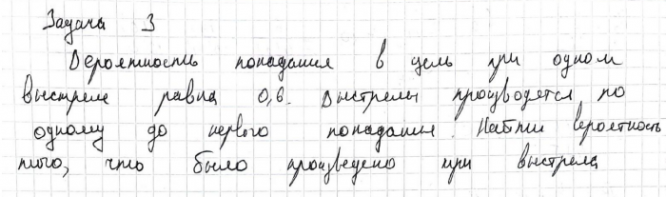 Задача 3
Вероятность попадания в цель при одном
выстреле равна 0,6. Выстрелы производятся по
одному до первого попадания. Найти вероятность
того, что было произведено при выстрела